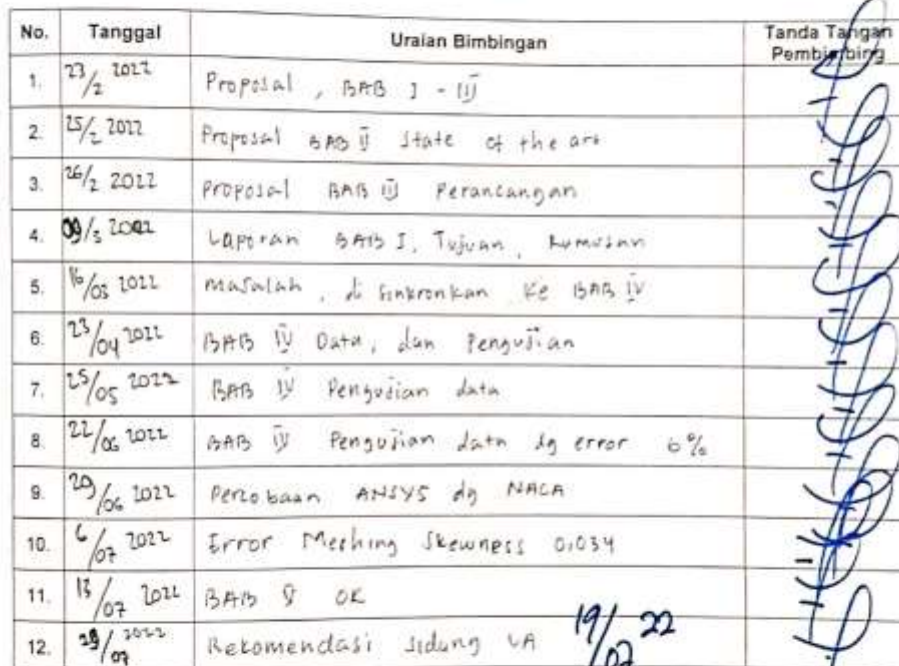 No. Tanggal Uraian Bimbingan Tanda Tangan Pembimbing
1. 23/2 2022 Proposal, BAB I - III
2. 25/2 2022 Proposal BAB II State of the art
3. 26/2 2022 Proposal BAB III Perancangan
4. 09/3 2022 Laporan BAB I, Tujuan, Rumusan
5. 16/03 2022 masalah, di sinkronkan ke BAB IV
6. 23/04 2022 BAB IV Data, dan Pengujian
7. 25/05 2022 BAB IV Pengujian data
8. 22/06 2022 BAB IV Pengujian data dg error 6%
9. 29/06 2022 Percobaan ANSYS dg NACA
10. 6/07 2022 Error Meshing Skewness 0,034
11. 13/07 2022 BAB V OK
12. /07 2022 Rekomendasi Sidang 19/07 22